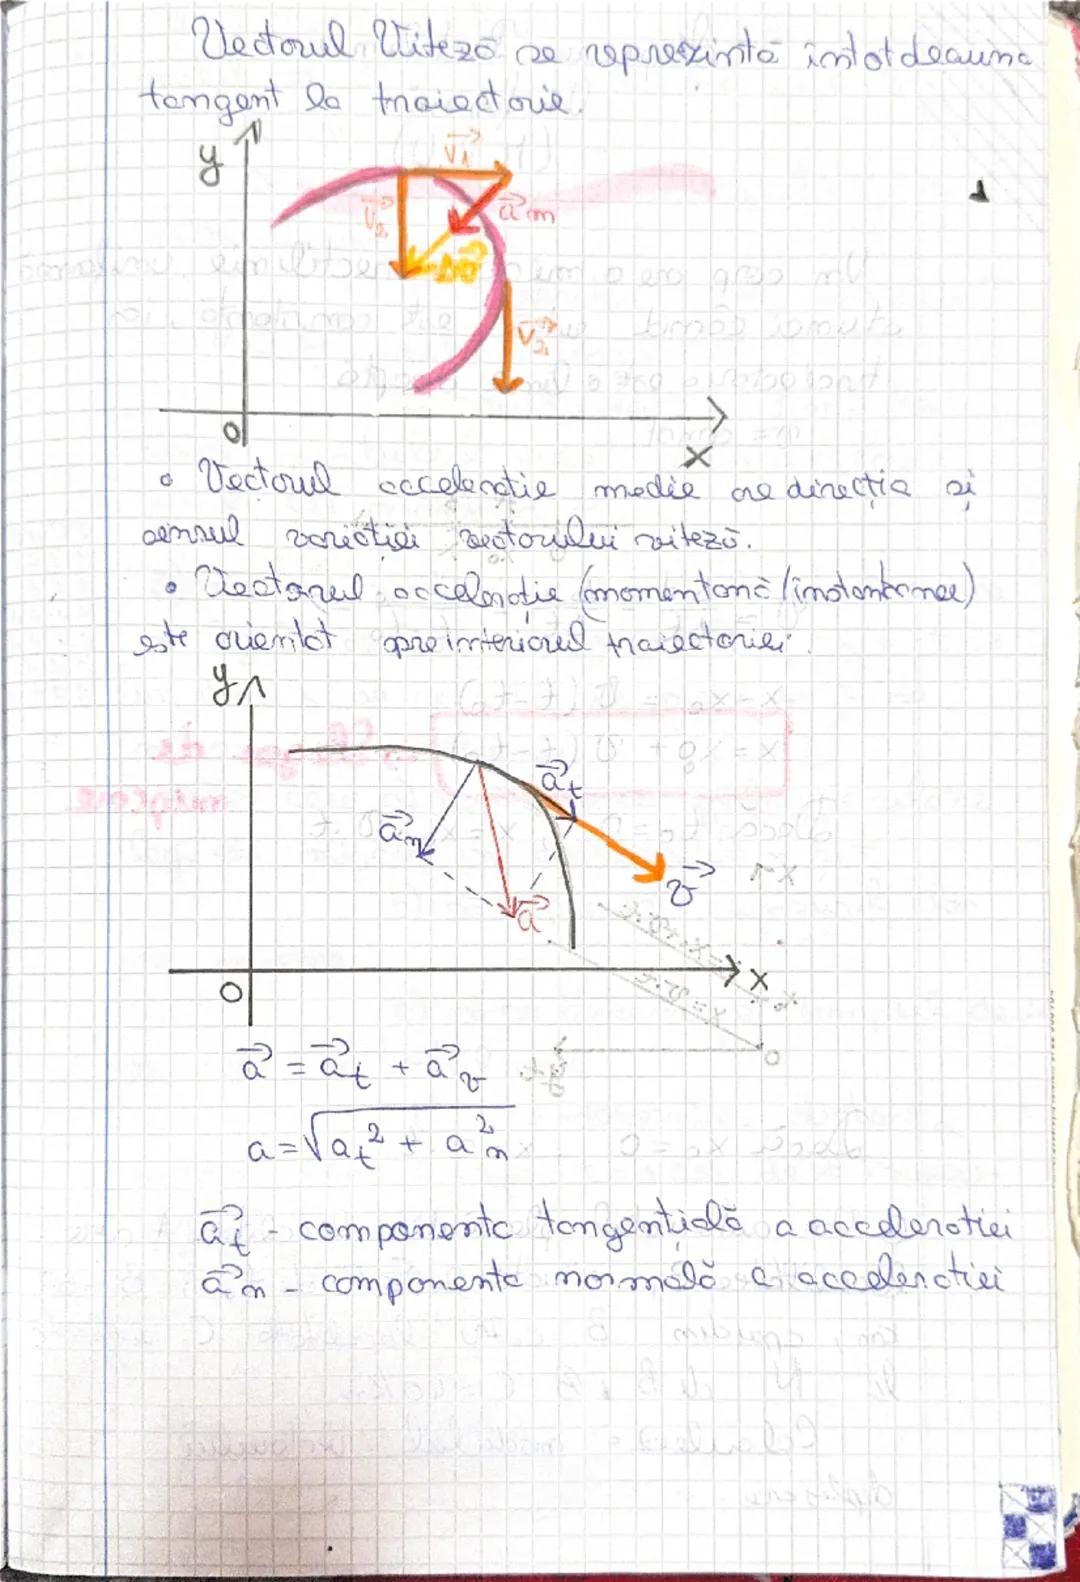 Vectorul Viteză se reprezintă întotdeauna
tangent la traiectorie.
y
v₁
a⃗m
v₂
Δv⃗
v₂
O
x
• Vectorul accelerație medie are direcția și
sensul variației vectorului viteză.
• Vectorul accelerație (momentană/instantanee)
este orientat spre interiorul traiectoriei.
y
a⃗t
a⃗n
v⃗
a⃗
O
x
a⃗ = a⃗t + a⃗v
a = √(at² + an²)
a⃗t - componenta tangențială a accelerației
a⃗n - componenta normală a accelerației